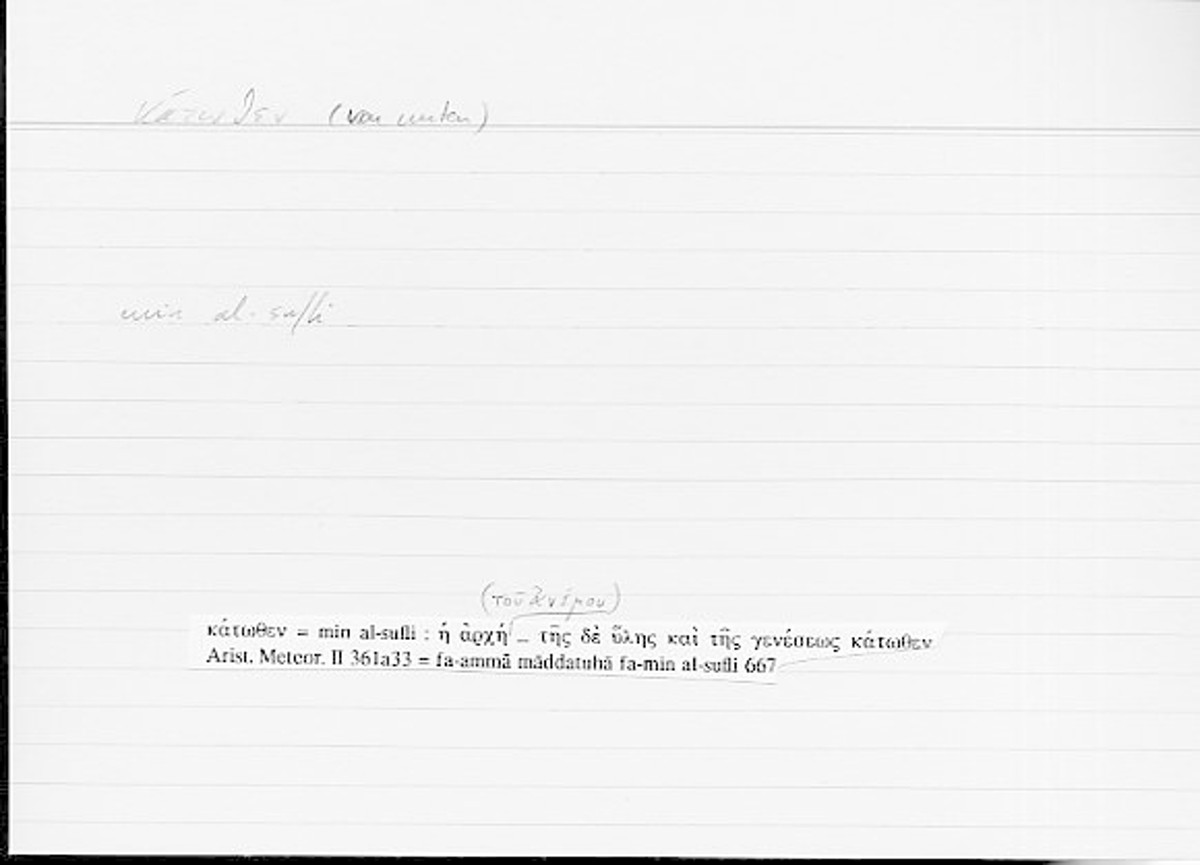 κάτωθεν (von unten)
min al-sufli
(τοῦ ἀνέμου)
κάτωθεν = min al-sufli : ἡ ἀρχή _ τῆς δὲ ὕλης καὶ τῆς γενέσεως κάτωθεν
Arist. Meteor. II 361a33 = fa-ammā māddatuhā fa-min al-sufli 667